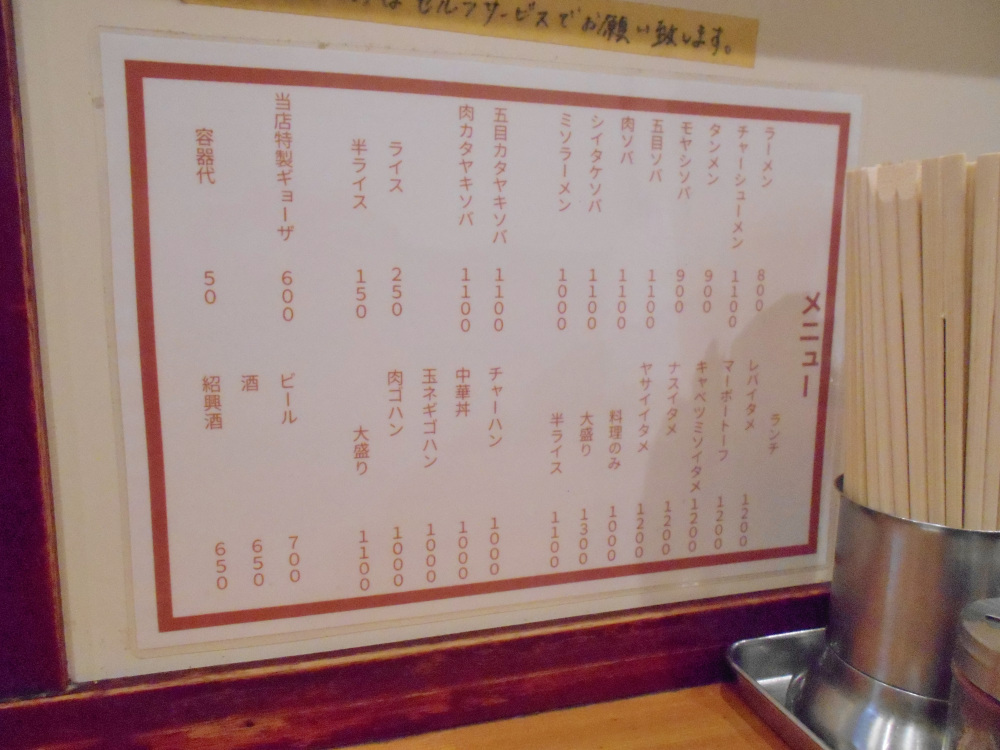 はセルフサービスでお願い致します。
メニュー
ラーメン 800
チャーシューメン 1100
タンメン 900
モヤシソバ 900
五目ソバ 1100
肉ソバ 1100
シイタケソバ 1100
ミソラーメン 1000
五目カタヤキソバ 1100
肉カタヤキソバ 1100
ライス 250
半ライス 150
当店特製ギョーザ 600
容器代 50
ランチ
レバイタメ 1200
マーボートーフ 1200
キャベツミソイタメ 1200
ナスイタメ 1200
ヤサイイタメ 1200
料理のみ 1000
大盛り 1300
半ライス 1100
チャーハン 1000
中華丼 1000
玉ネギゴハン 1000
肉ゴハン 1000
大盛り 1100
ビール 700
酒 650
紹興酒 650